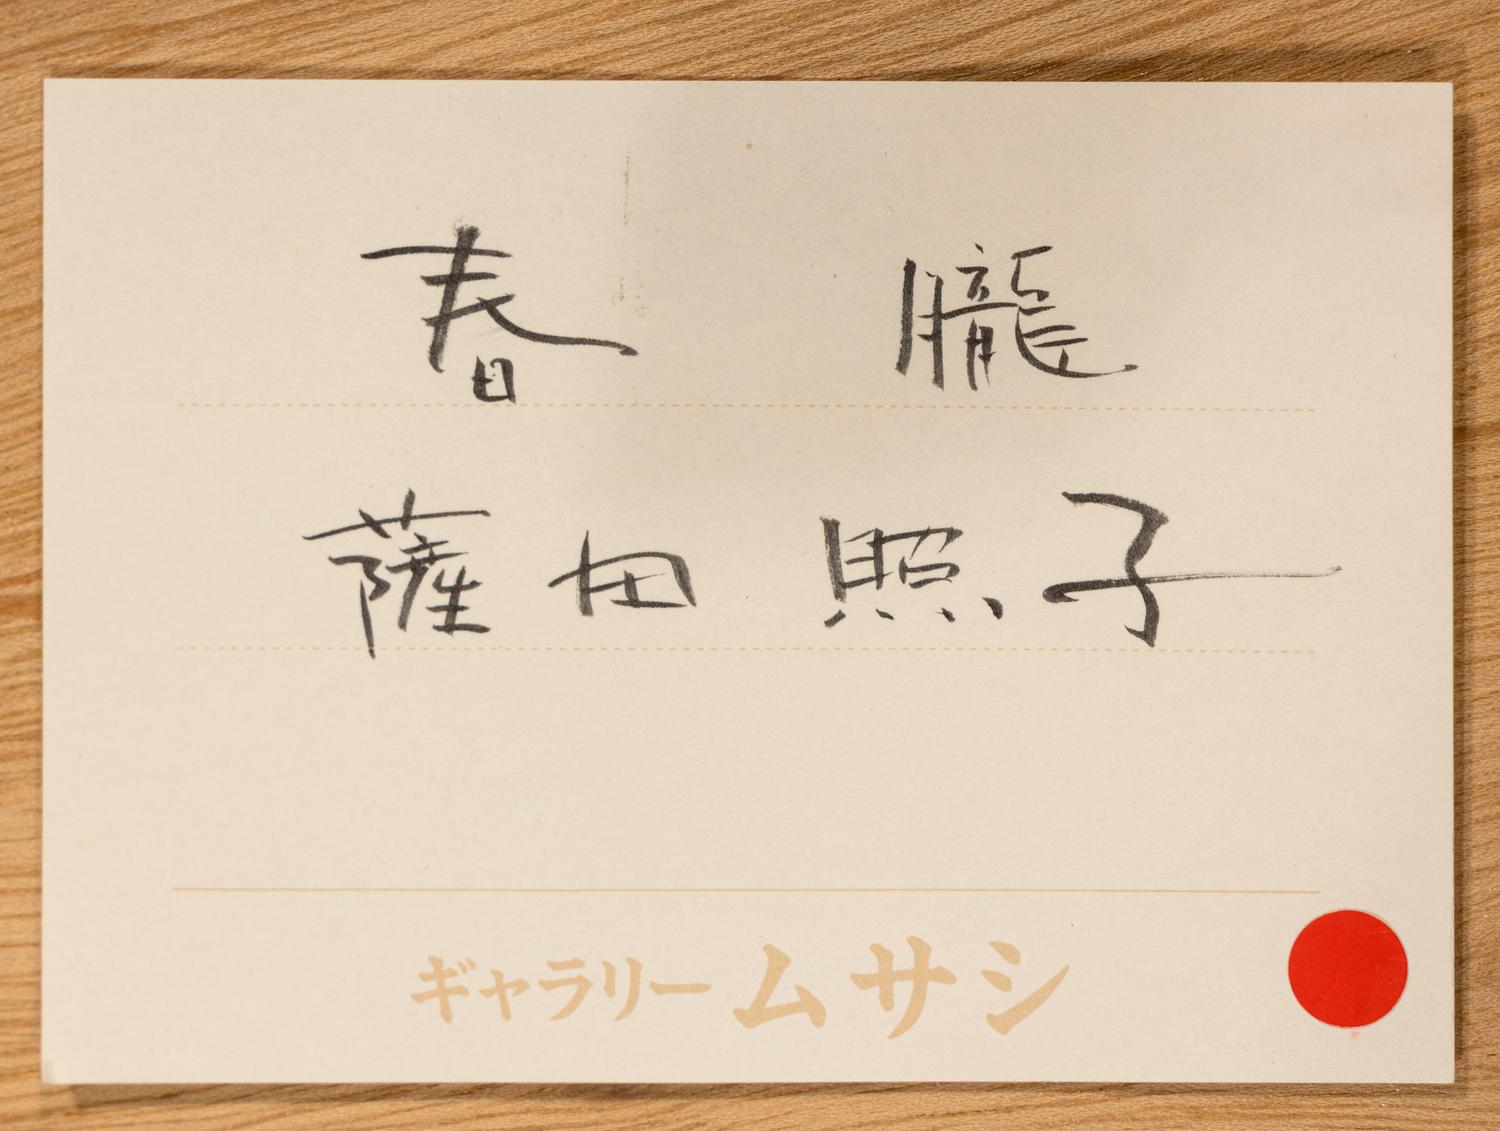 春 朧
薩田 照子
ギャラリームサシ